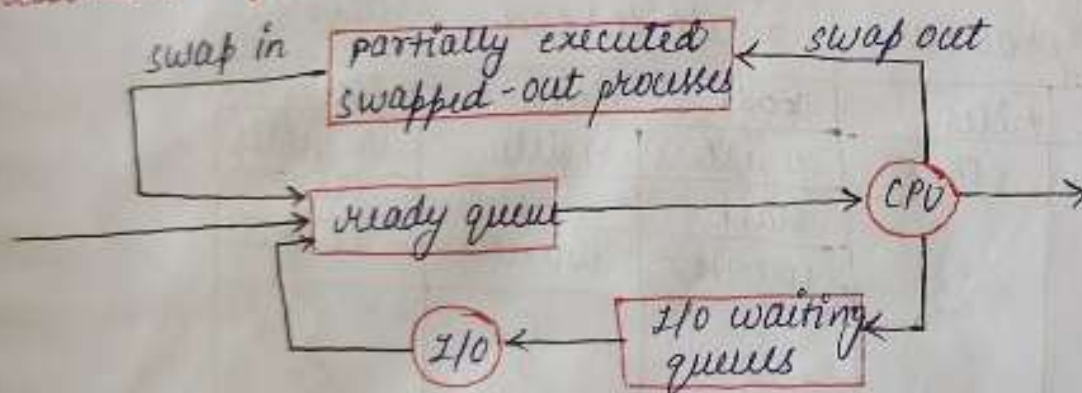 swap in
partially executed
swapped-out processes
swap out
ready queue
CPU
I/O waiting
queues
I/O